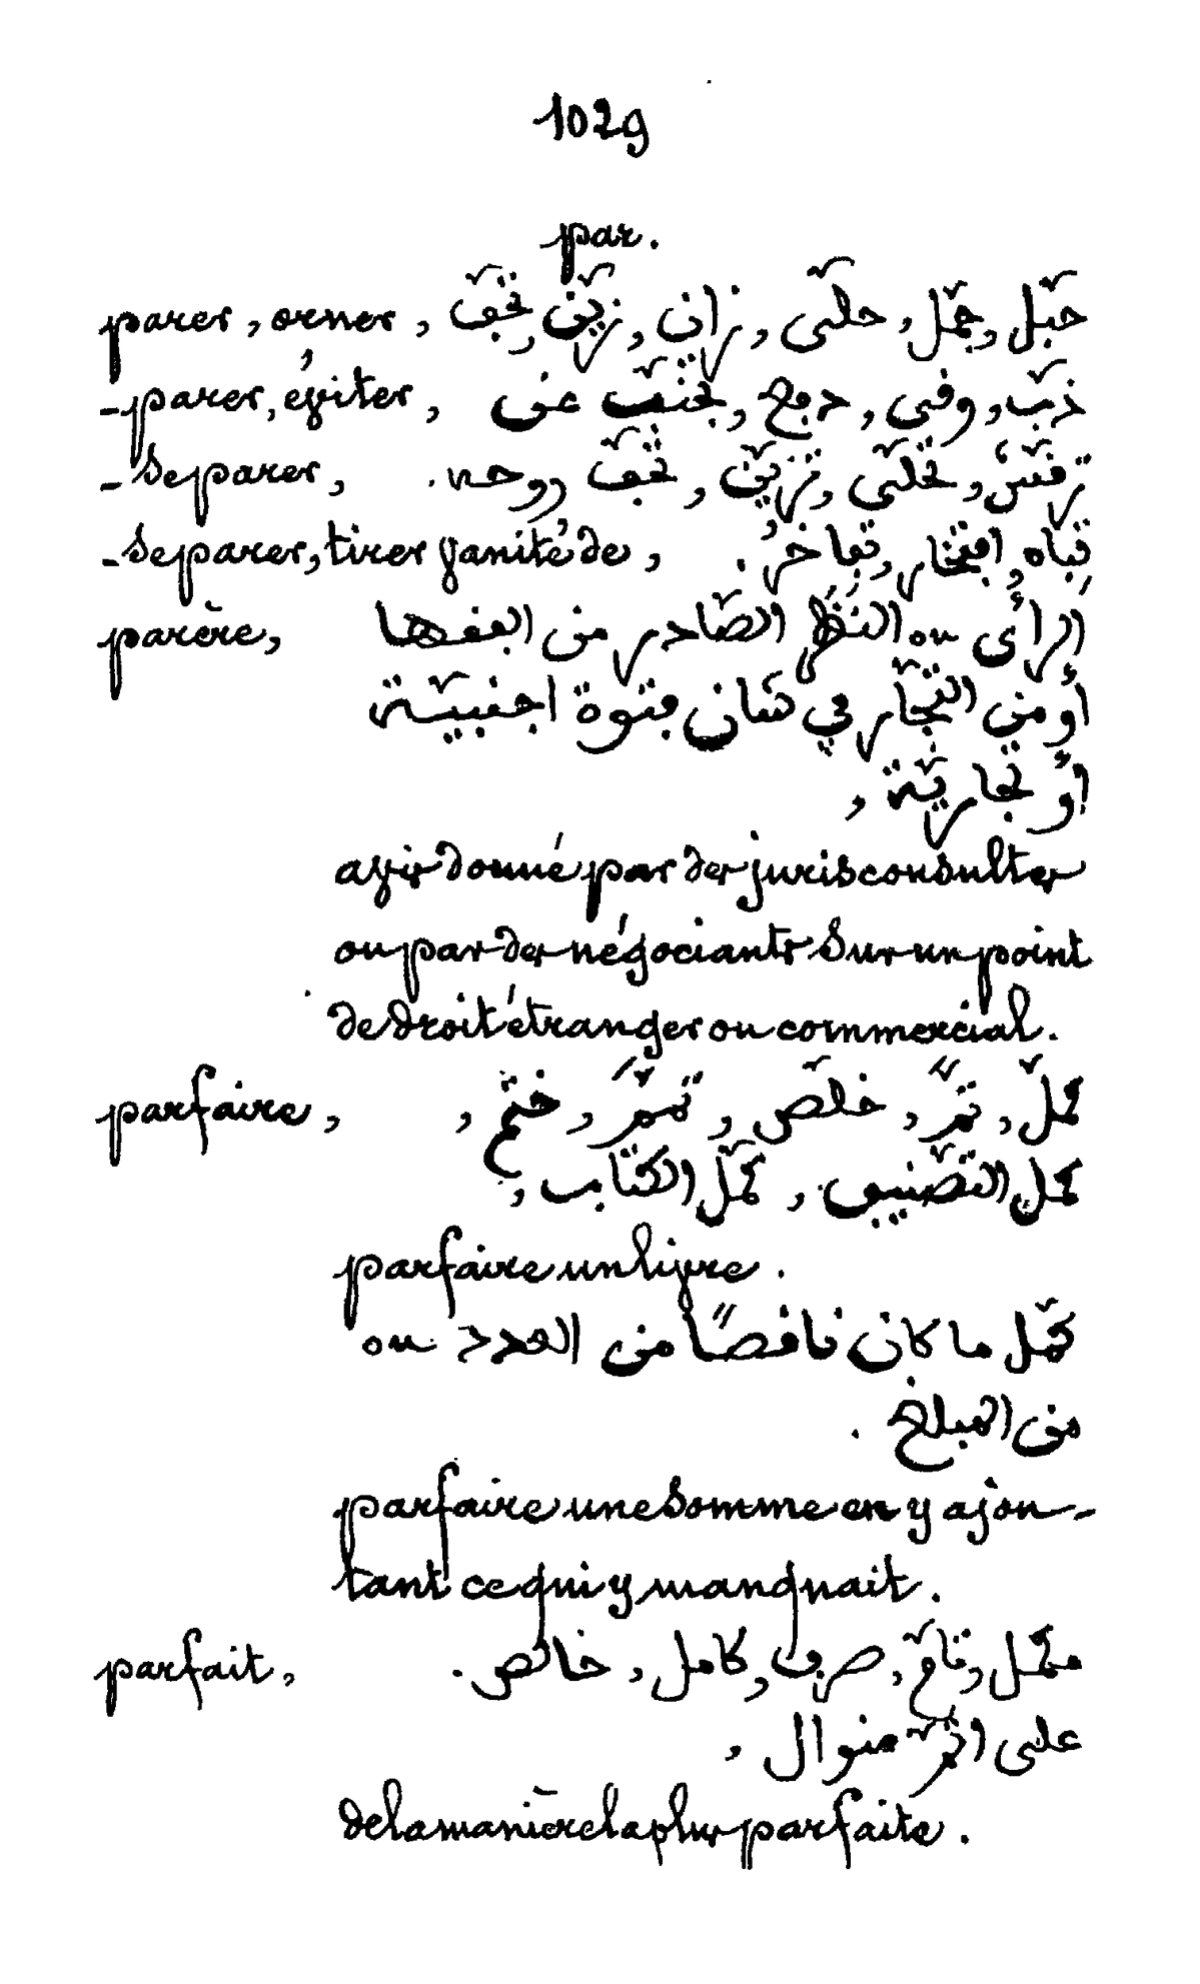 1029
par.
parer, orner, حبّل, جمّل, حلّى, زان, زيّن, تحّف
- parer, éviter, ذبّ, وفى, دفع, تجنّب عن
- se parer, تحلّى, تزيّن, تحّف روحه.
- se parer, tirer vanité de, تباه, افتخار, تفاخر.
parère, الرأى ou النظر الصّادر من الفقها
أو من التجّار في شان فتوة اجنبيّة
أو تجاريّة,
avis donné par des jurisconsultes
ou par des négociants sur un point
de droit étranger ou commercial.
parfaire, كمّل, تمّ, خلّص, تمّم, ختم,
كمل التصنيف, كمّل الكتاب,
parfaire un livre.
كمّل ما كان ناقصًا من العدد ou
من المبلغ.
parfaire une somme en y ajou-
tant ce qui y manquait.
parfait, مكمّل, تامّ, صرف, كامل, خالص.
على اتمّ منوال,
de la manière la plus parfaite.